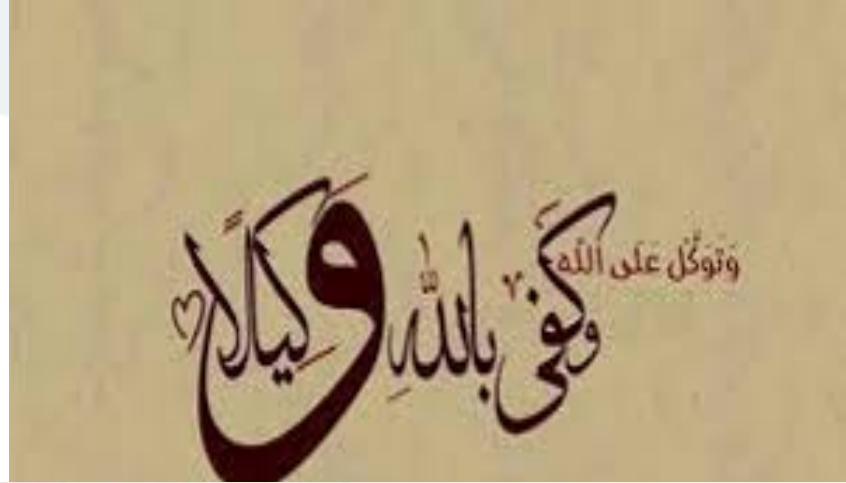 وَتَوَكَّل عَلَى اللَّه
وَكَفَى بِاللَّهِ وَكِيلًا